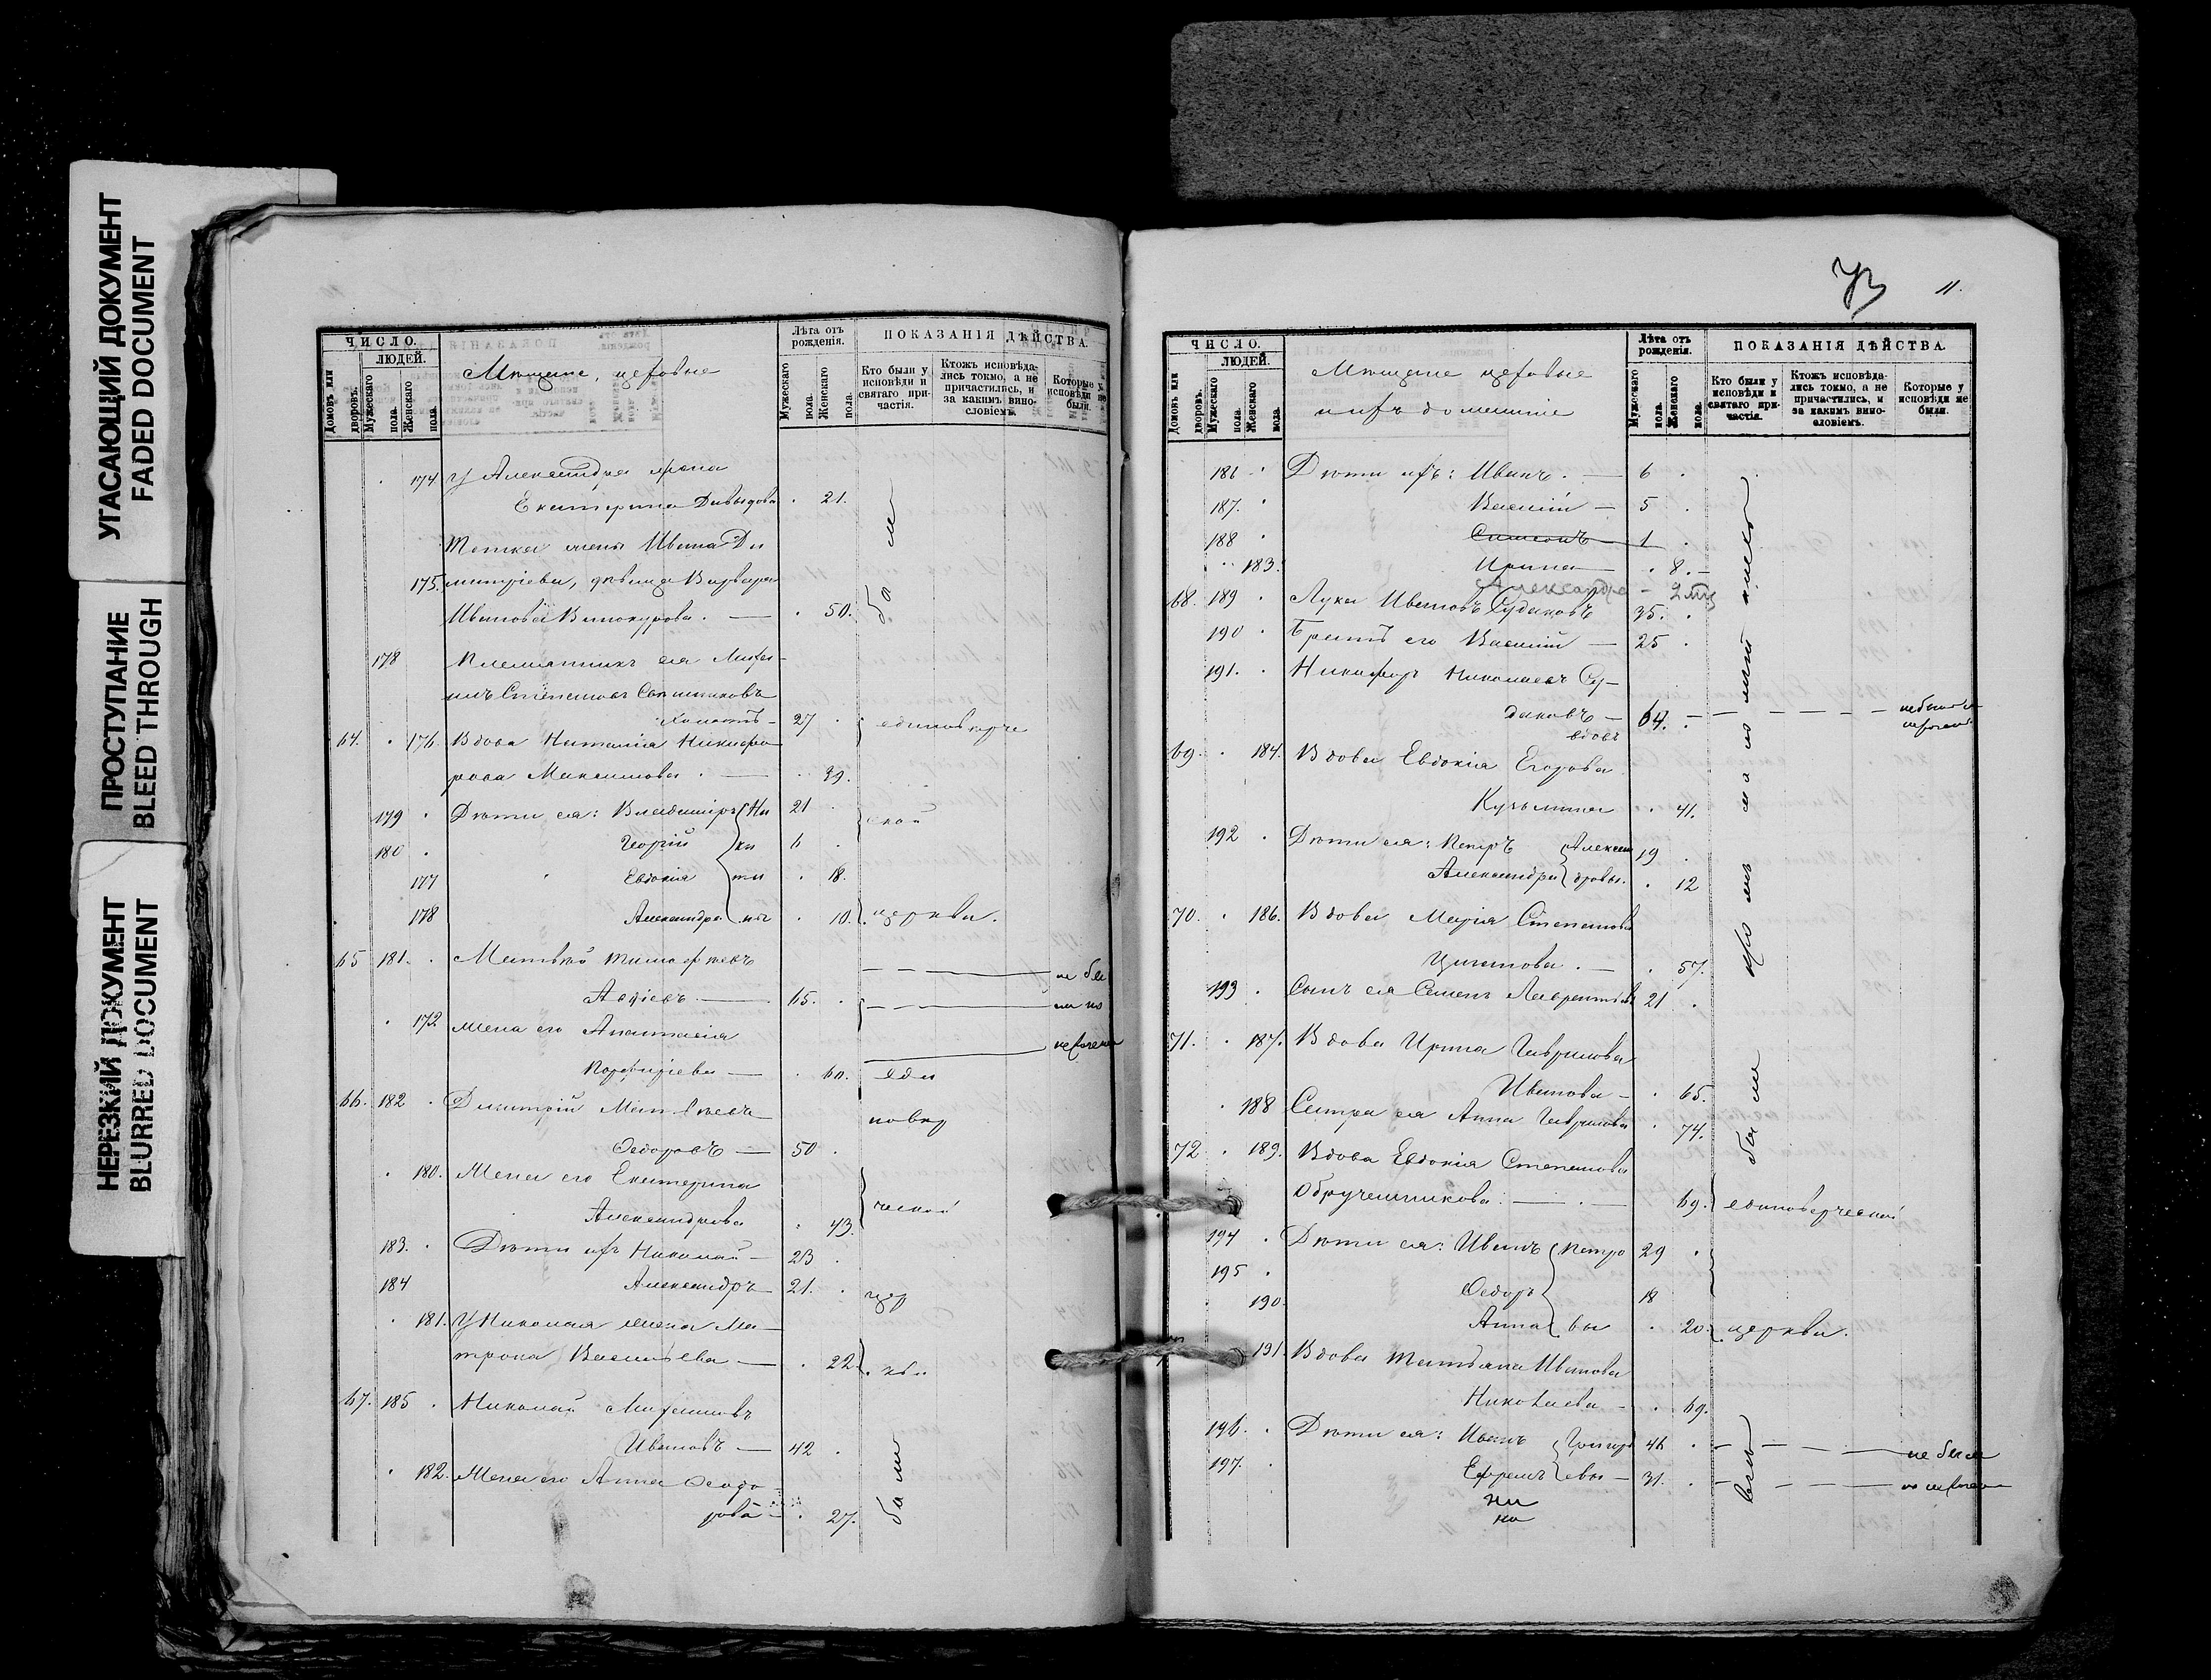 УГАСАЮЩИЙ ДОКУМЕНТ
FADED DOCUMENT
ПРОСТУПАНИЕ
BLEED THROUGH
НЕРЕЗКИЙ ДОКУМЕНТ
BLURRED DOCUMENT
ЧИСЛО.
ЛЮДЕЙ.
Домовъ или дворовъ.
Мужескаго пола.
Женскаго пола.
Мѣщане, цеховые
Лѣта отъ рожденія.
Мужескаго пола.
Женскаго пола.
ПОКАЗАНІЯ ДѢЙСТВА.
Кто были у исповѣди и святаго причастія.
Ктожъ исповѣдались токмо, а не причастились, и за какимъ винословіемъ.
Которые у исповѣди не были.
174. У Александра жена
Екатерина Давыдова 21.
Тетка жены Ивана Ди
175. митріева, дѣвица Варвара
Иванова Винокурова. — 50.
178 Племянникъ ея Миха-
илъ Степановъ
Холостъ — 27 единовѣрче
64. 176. Вдова Наталія Никифо
рова Максимова. — 39.
179 Дѣти ея: Владиміръ Ни 21 ской
180 Георгій ки 6
177 Евдокія ти 18.
178 Александра ны 10. церкви.
65 181. Матвѣй Тимофѣевъ
65. не бы
172 Жена его Анастасія ли по
Порфиріева — 60. еди
66. 182 Димитрій Матвѣевъ новѣр
Ѳедоровъ — 50
180. Жена его Екатерина
Александрова 43. ческой
183. Дѣти ихъ Николай — 23
184 Александръ — 21. цер
181. У Николая жена Ма-
трона Васильева — 22 кви
67. 185 Николай Михаиловъ
Ивановъ — 42
182. Жена его Анна Ѳеодо
рова — 27.
бы ли
были
11.
ЧИСЛО.
ЛЮДЕЙ.
Домовъ или дворовъ.
Мужескаго пола.
Женскаго пола.
Мѣщане цеховые
ихъ домашніе
Лѣта отъ рожденія.
Мужескаго пола.
Женскаго пола.
ПОКАЗАНІЯ ДѢЙСТВА.
Кто были у исповѣди и святаго причастія.
Ктожъ исповѣдались токмо, а не причастились, и за какимъ винословіемъ.
Которые у исповѣди не были.
186 Дѣти ихъ: Иванъ. — 6
187. Василій — 5
188 Симеонъ 1
183. Ирина — 8. —
Александра —
68. 189 Лука Ивановъ Судаковъ 35.
190 Братъ его Василій — 25
191. Никифоръ Николаевъ Су-
даковъ — 64. — не былъ
вдовъ
69. 184. Вдова Евдокія Егорова
Кузьмина 41.
192 Дѣти ея: Петръ Алексан 19
Александра дровы. 12
70. 186. Вдова Марія Степанова
57.
193 Сынъ ея Семенъ Лаврентьевъ 21
71. 187. Вдова Ирина Гаврилова
Иванова — 65.
188 Сестра ея Анна Гаврилова 74.
72 189. Вдова Евдокія Степанова
Обручешникова. — 69. единоверческой
194 Дѣти ея: Иванъ Петро 29
195 Ѳедоръ 18
190. Анна вы 20. церкви.
191. Вдова Татьяна Иванова
Николаева — 69.
196. Дѣти ея: Иванъ Григор 46 — не были
197. Ефремъ евы — 31.
бы ли